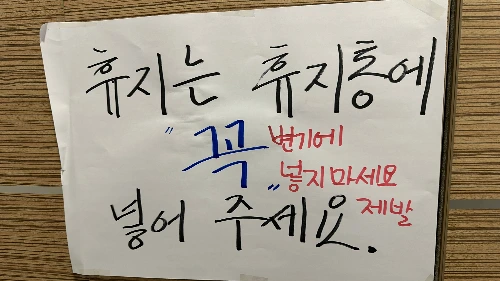 휴지는 휴지통에
"꼭" 변기에
넣지마세요
넣어 주세요. 제발